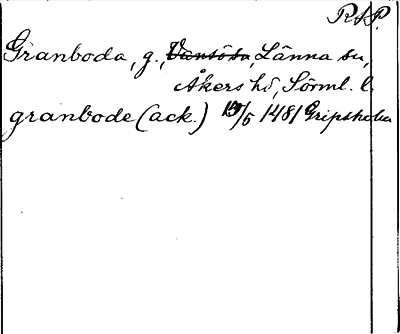 RAP.
Granboda, g., Vansösn, Länna sn,
Åkers hd, Sörml. l.
granbode (ack.) 15/5 1481 Gripsholm